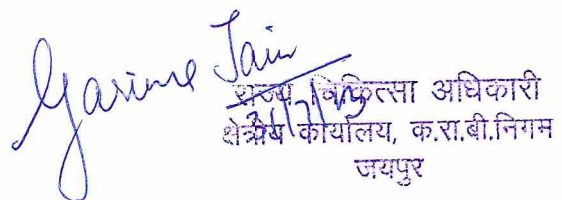 Garima Jain
31/7/13
राज्य चिकित्सा अधिकारी
क्षेत्रीय कार्यालय, क.रा.बी.निगम
जयपुर